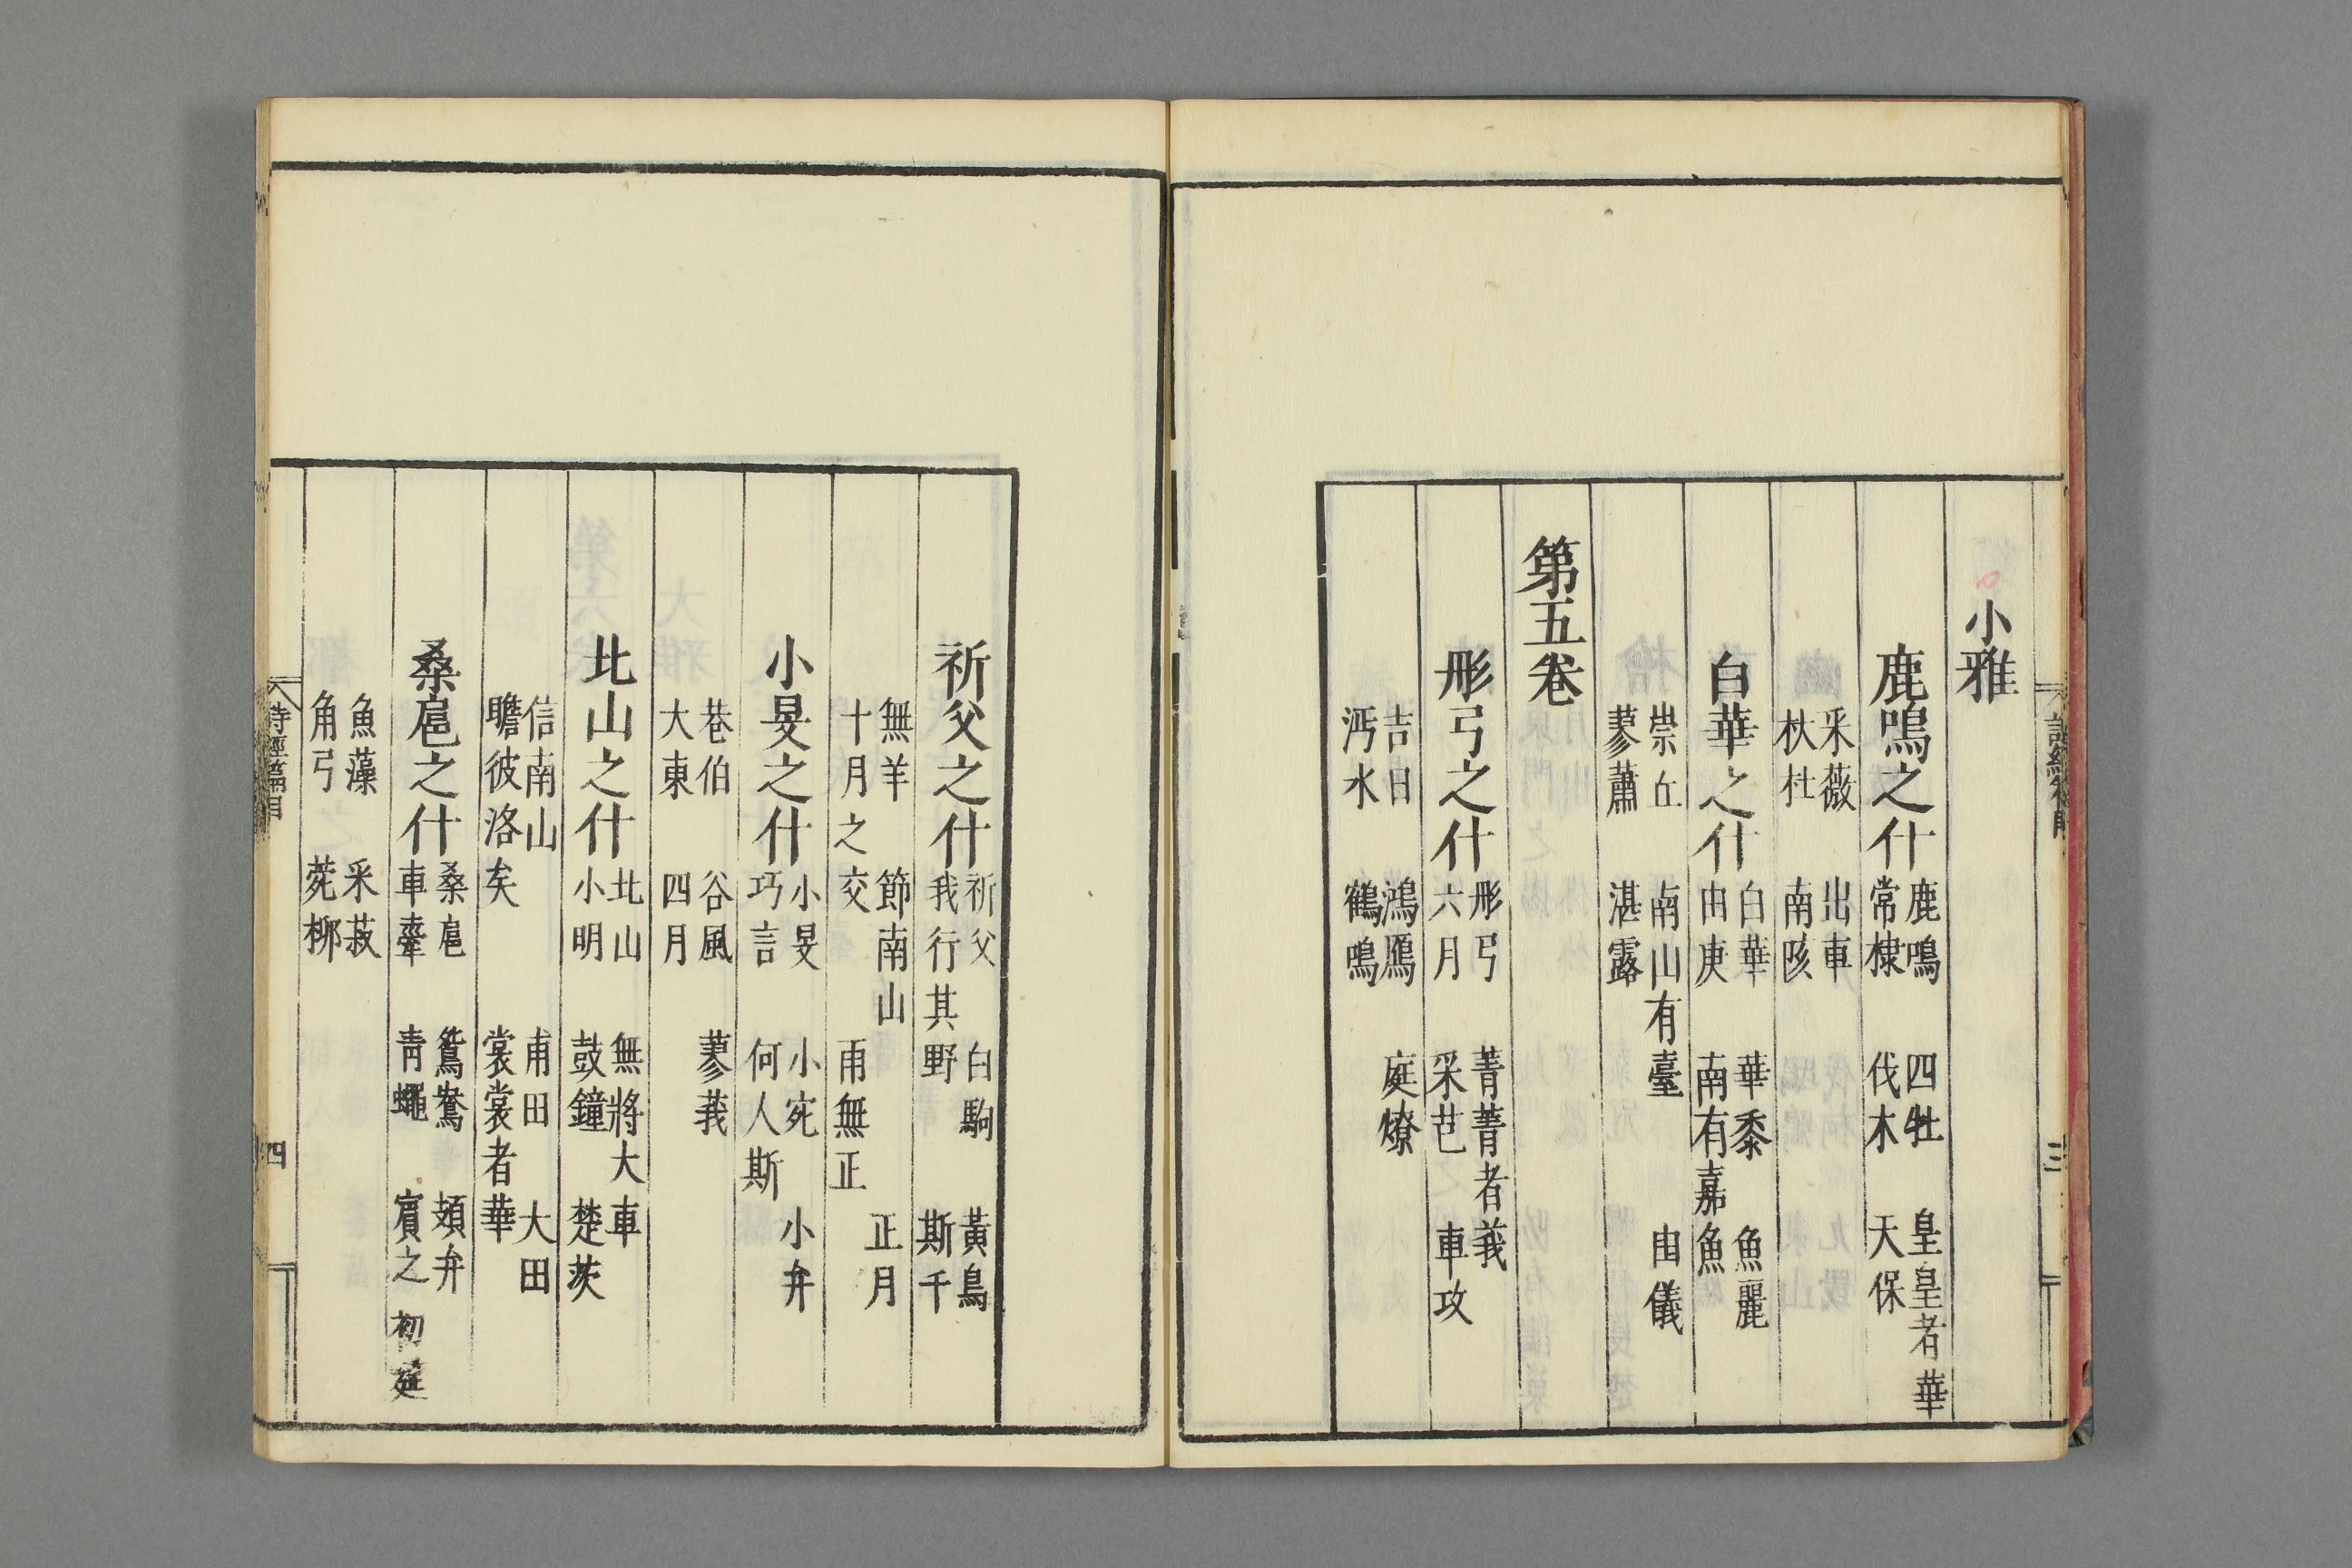 小雅
鹿鳴之什 鹿鳴 四牡 皇皇者華
常棣 伐木 天保
采薇 出車
杕杜 南陔
白華之什 白華 華黍 魚麗
由庚 南有嘉魚
崇丘 南山有臺 由儀
蓼蕭 湛露
第五卷
彤弓之什 彤弓 菁菁者莪
六月 采芑 車攻
吉日 鴻鴈 庭燎
沔水 鶴鳴
三
祈父之什 祈父 白駒 黃鳥
我行其野 斯干
無羊 節南山 正月
十月之交 雨無正
小旻之什 小旻 小宛 小弁
巧言 何人斯
巷伯 谷風 蓼莪
大東 四月
北山之什 北山 無將大車
小明 鼓鐘 楚茨
信南山 甫田 大田
瞻彼洛矣 裳裳者華
桑扈之什 桑扈 鴛鴦 頍弁
車舝 青蠅 賓之初筵
魚藻 采菽
角弓 菀柳
詩經篇目 四